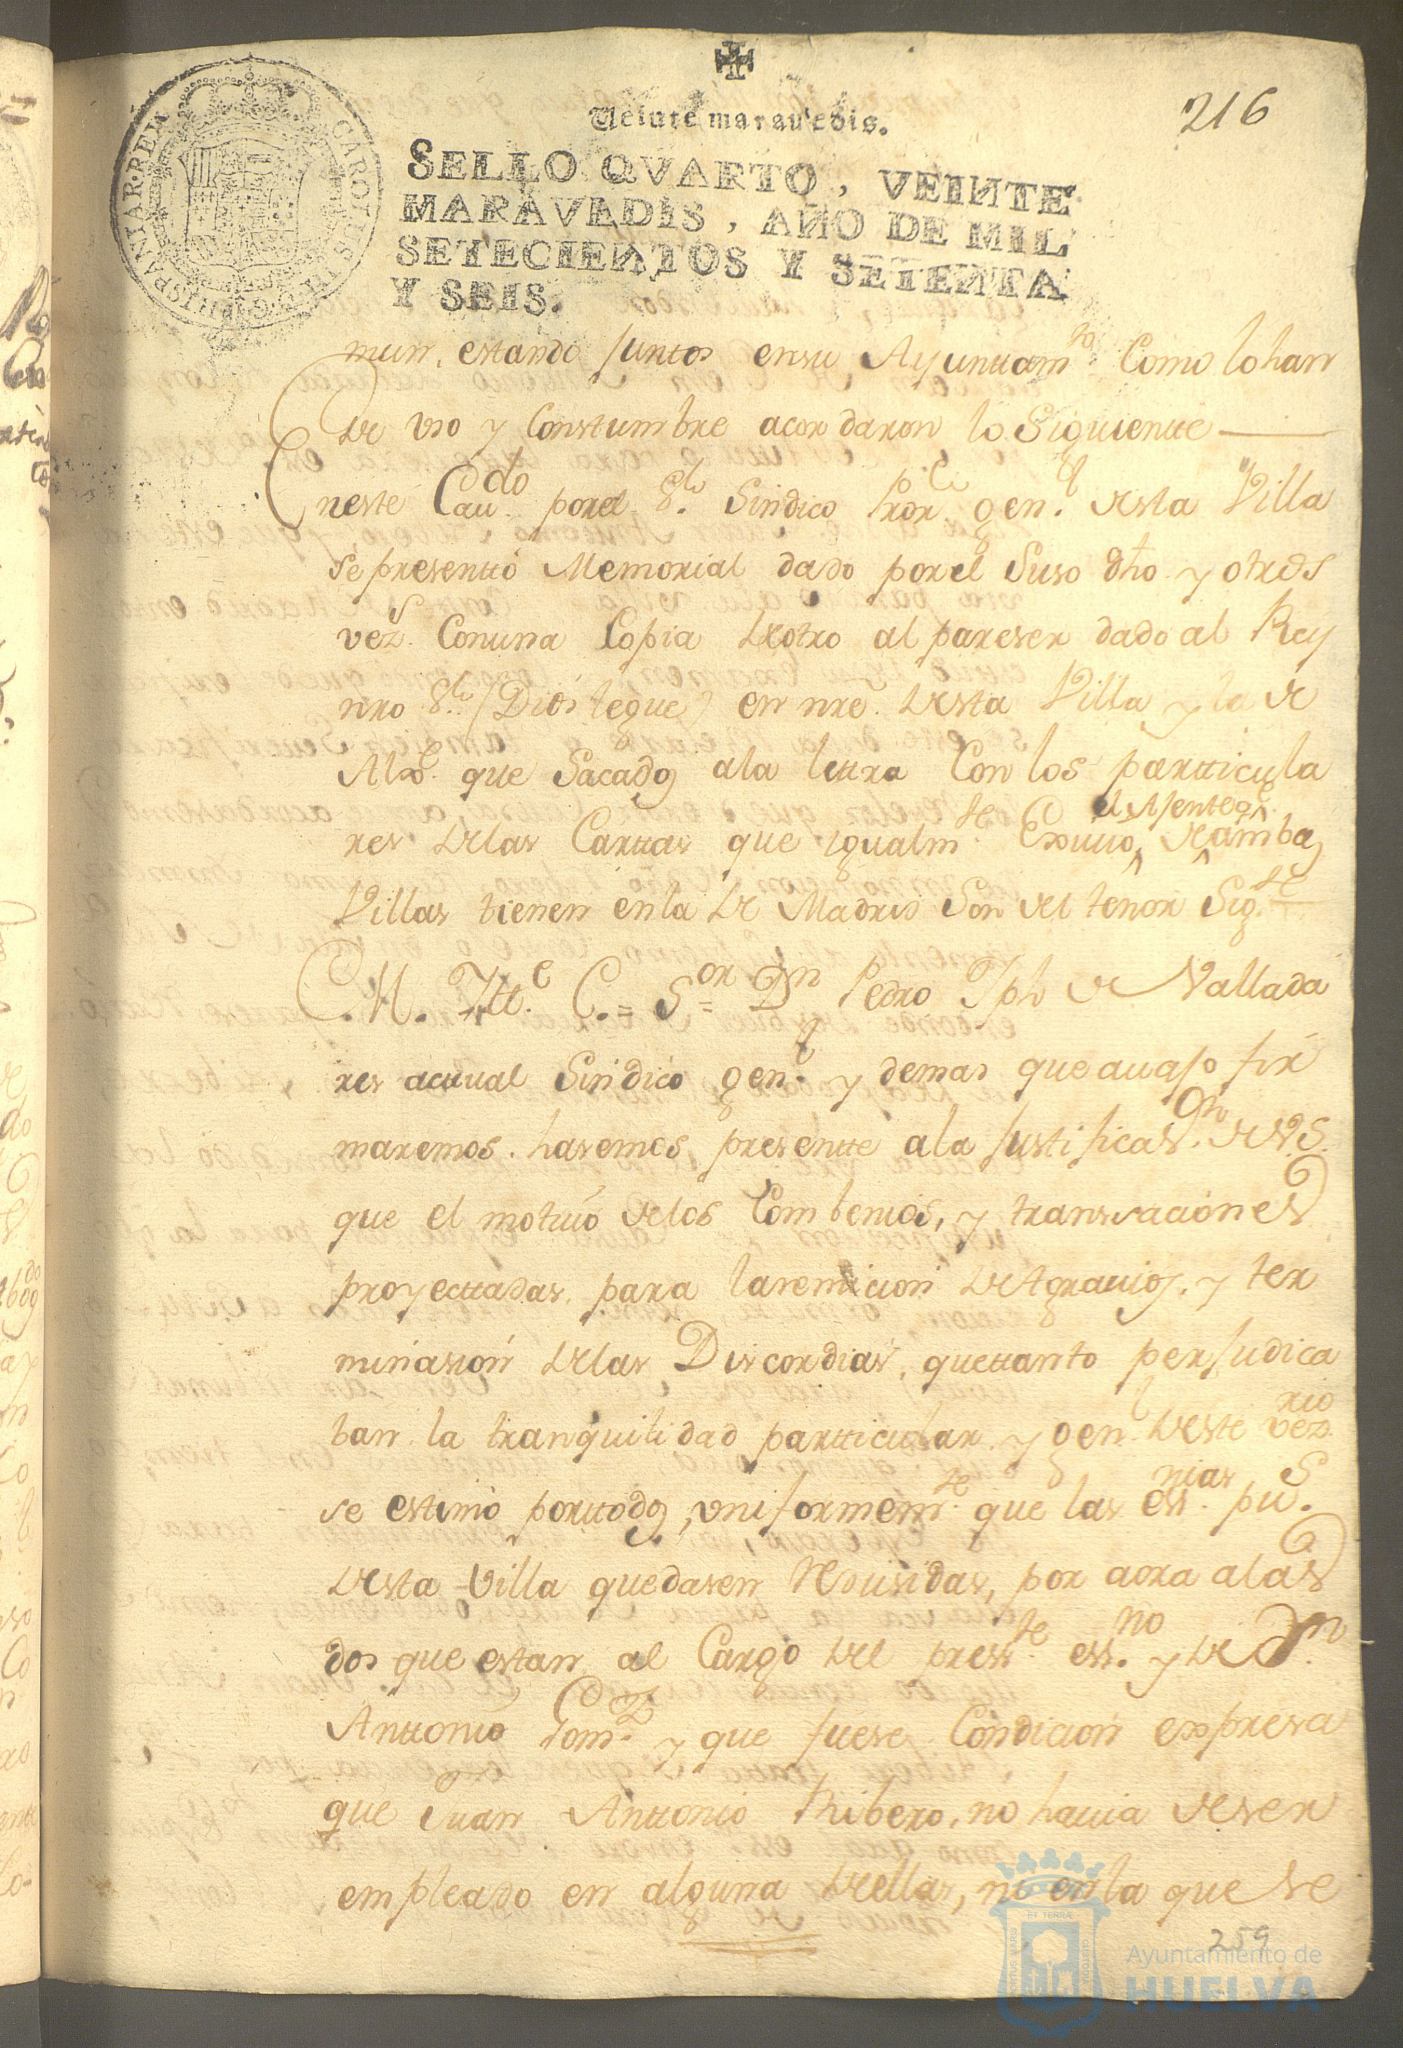 216
Veinte maravedis.
SELLO QVARTO, VEINTE
MARAVEDIS, AÑO DE MIL
SETECIENTOS Y SETENTA
Y SEIS.
CAROLUS III D G HISPANIAR REX
mun, estando Juntos ensu Ayunttamto Como lo han
de vso y Constumbre acordaron lo Siguiente
Eneste Cavdo por el Sr Sindico Pror genl desta Villa
se presenttó Memorial dado por el Suso dho y otros
vezs Con una Copia de otro al pareser dado al Rey
nro Sr (Dios le gue) en nre desta Villa y la de
que Sacados ala lettra Con los particula
res delas Carttas que igualmte Exivio, el Ajente qe de amba,
Villas tienen en la de Madrid Son del tenor Sigte
M. Itte C. = Sor = Dn Pedro Jph de Vallada
res acttual Sindico genl y demas que auajo fir
maremos. hasemos presentte ala Justificason de V.S.
que el motivo delos Combenios, y transaciones
proyecttadas para la remicion de Agravios, y ter
minasion delas Discordias, quettanto perJudica
ban la tranquilidad partticular y genl deste vezrio
se estimó porttodos, vniformemte que las essnias pus
desta Villa quedasen Redusidas, por aora alas
dos que estan al Cargo del presste essno y de Dn
Anttonio Gomz y que fuese Condicion expresa
que Juan Anttonio Ribero, no havia de ser
empleado en alguna dellas, ni en la que se
259
Ayuntamiento de
HUELVA